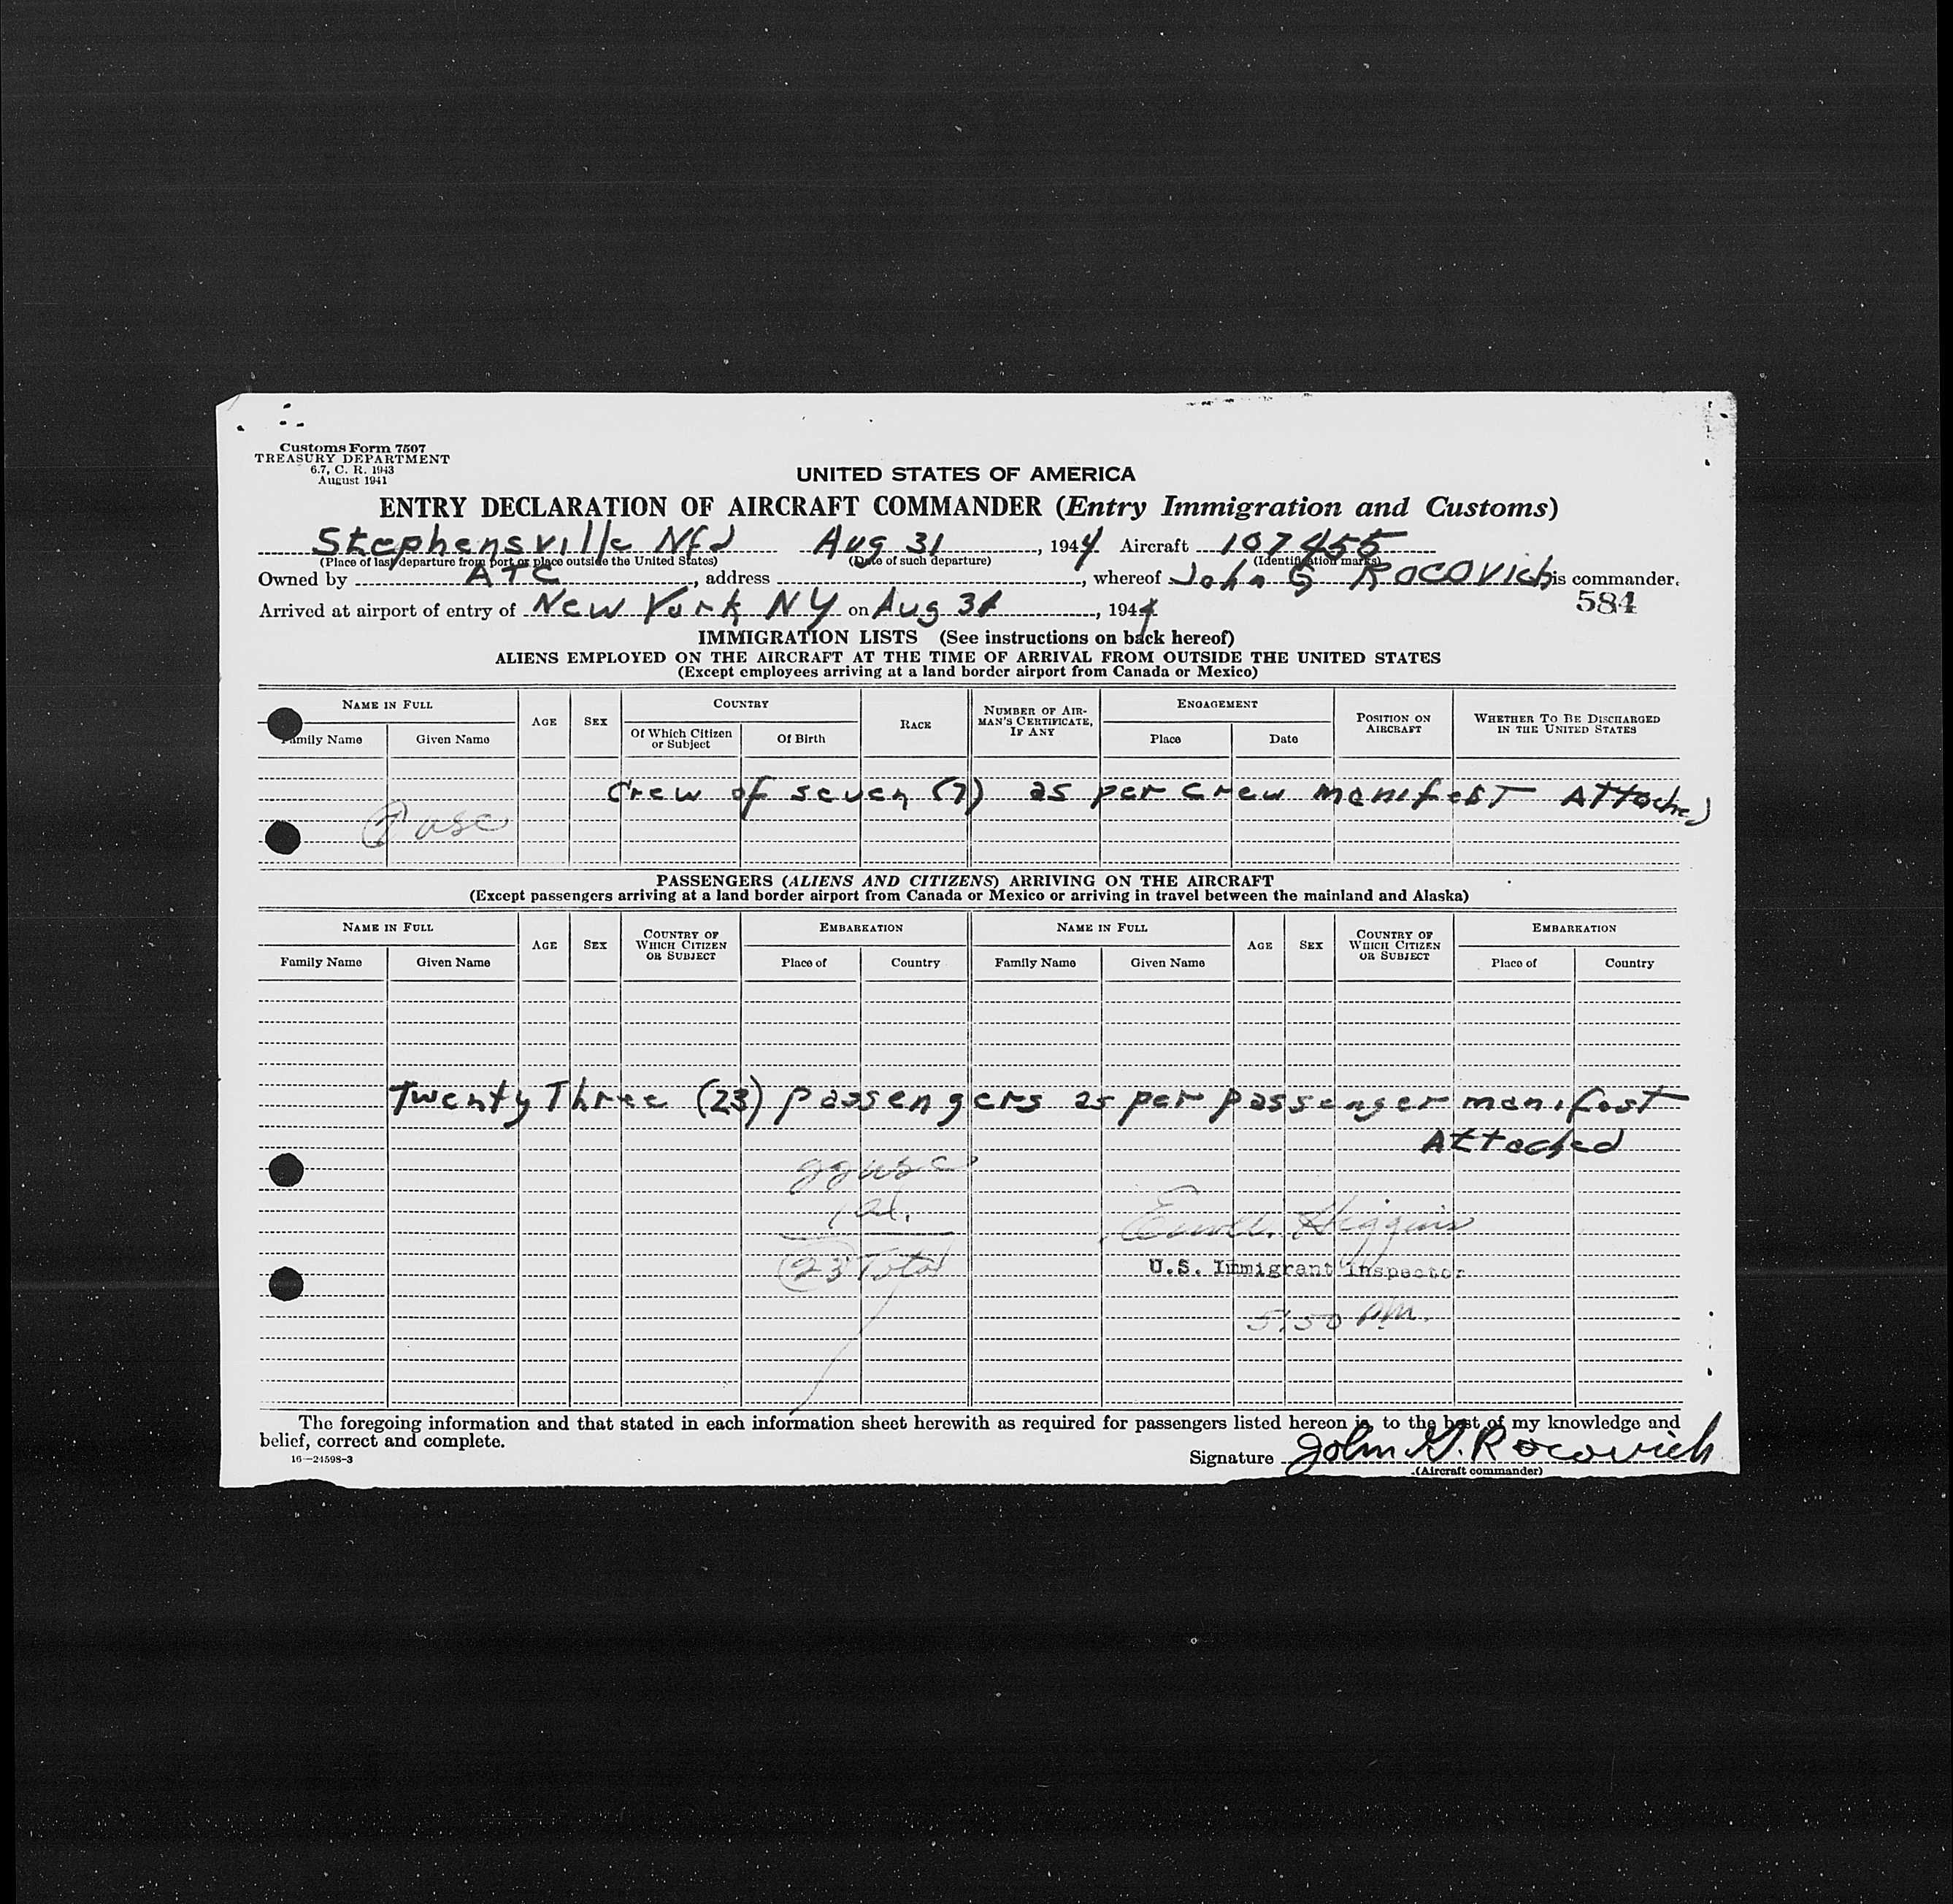 Customs Form 7507
TREASURY DEPARTMENT
6.7, C. R. 1943
August 1941
UNITED STATES OF AMERICA
ENTRY DECLARATION OF AIRCRAFT COMMANDER (Entry Immigration and Customs)
Stephensville Nfd Aug 31, 1944 Aircraft 107455
(Place of last departure from port or place outside the United States) (Date of such departure) (Identification marks)
Owned by ATC, address , whereof John G Rocovich is commander.
Arrived at airport of entry of New York NY on Aug 31, 1944
584
IMMIGRATION LISTS (See instructions on back hereof)
ALIENS EMPLOYED ON THE AIRCRAFT AT THE TIME OF ARRIVAL FROM OUTSIDE THE UNITED STATES
(Except employees arriving at a land border airport from Canada or Mexico)
NAME IN FULL AGE SEX COUNTRY RACE NUMBER OF AIRMAN'S CERTIFICATE, IF ANY ENGAGEMENT POSITION ON AIRCRAFT WHETHER TO BE DISCHARGED IN THE UNITED STATES
Family Name Given Name Of Which Citizen or Subject Of Birth Place Date
Crew of seven (7) as per crew manifest Attached
7 usc
PASSENGERS (ALIENS AND CITIZENS) ARRIVING ON THE AIRCRAFT
(Except passengers arriving at a land border airport from Canada or Mexico or arriving in travel between the mainland and Alaska)
NAME IN FULL AGE SEX COUNTRY OF WHICH CITIZEN OR SUBJECT EMBARKATION NAME IN FULL AGE SEX COUNTRY OF WHICH CITIZEN OR SUBJECT EMBARKATION
Family Name Given Name Place of Country Family Name Given Name Place of Country
Twenty Three (23) passengers as per passenger manifest
Attached
22 usc
1 al.
23 Total
Higgins
U.S. Immigrant Inspector
5:50 pm.
The foregoing information and that stated in each information sheet herewith as required for passengers listed hereon is, to the best of my knowledge and
belief, correct and complete.
16—24598-3
Signature John G. Rocovich
(Aircraft commander)